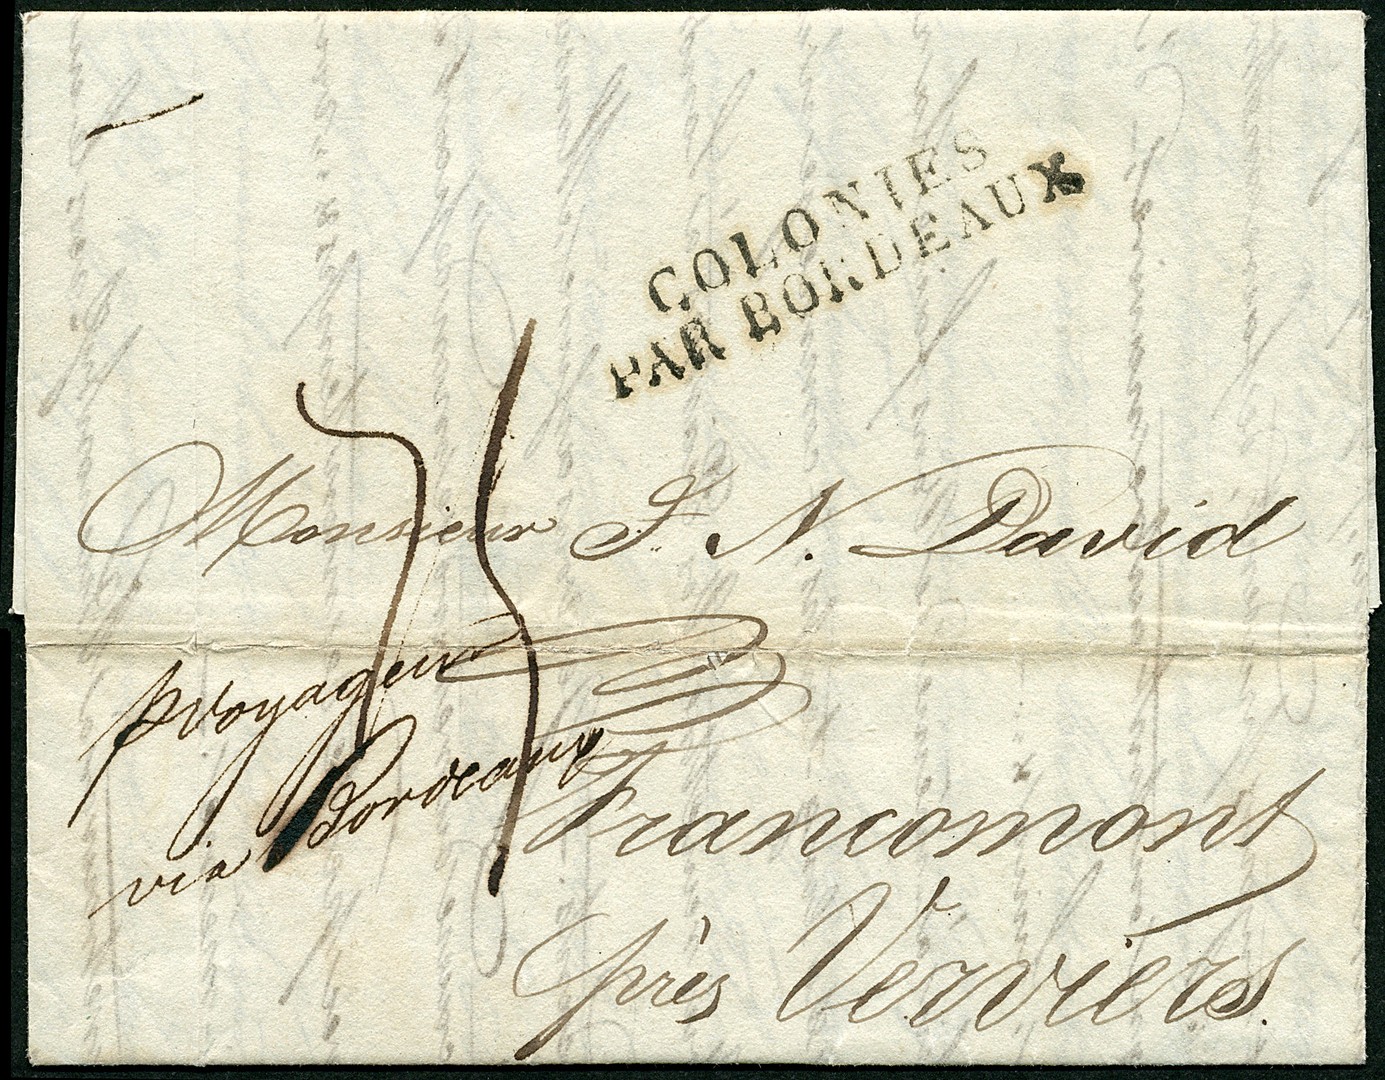 COLONIES
PAR BORDEAUX
Monsieur J. N. David
p Voyageur
via Bordeaux
Francomont
près Verviérs.